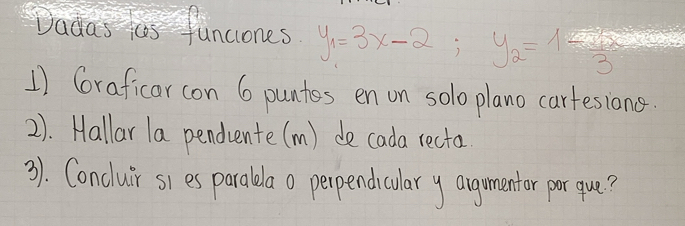 Dadas las funciones. y₁=3x-2 ; y₂= 1-
3
1) Graficar con 6 puntos en un solo plano cartesiano.
2). Hallar la pendiente (m) de cada recta.
3). Concluir si es paralela o perpendicular y argumentar por que?